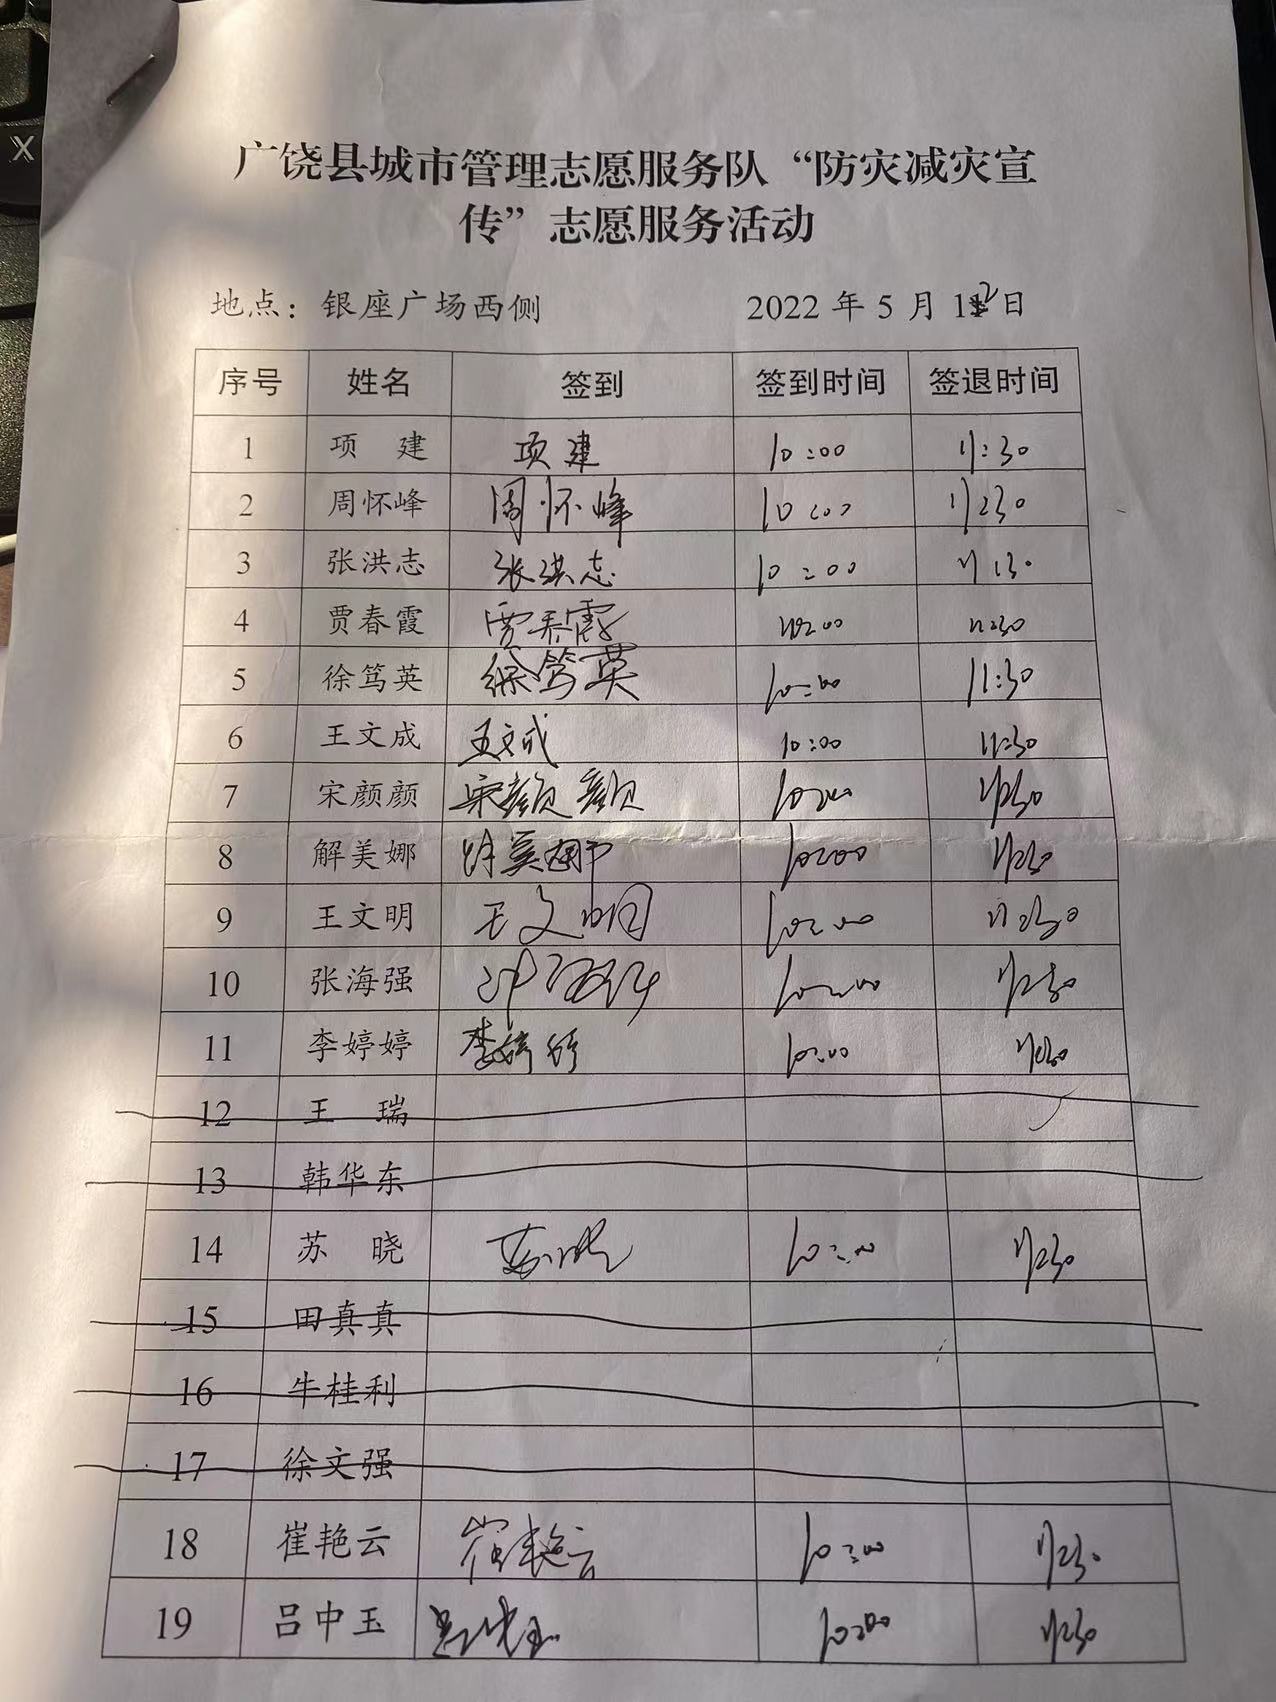 广饶县城市管理志愿服务队“防灾减灾宣
传”志愿服务活动
地点：银座广场西侧 2022 年 5 月 12 日
序号 姓名 签到 签到时间 签退时间
1 项 建 项建 10:00 11:30
2 周怀峰 周怀峰 10:00 11:30
3 张洪志 张洪志 10:00 11:30
4 贾春霞 贾春霞 10:00 11:30
5 徐笃英 徐笃英 10:00 11:30
6 王文成 王文成 10:00 11:30
7 宋颜颜 宋颜颜 10:00 11:30
8 解美娜 解美娜 10:00 11:30
9 王文明 王文明 10:00 11:30
10 张海强 张海强 10:00 11:30
11 李婷婷 李婷婷 10:00 11:30
12 王 瑞
13 韩华东
14 苏 晓 苏晓 10:00 11:30
15 田真真
16 牛桂利
17 徐文强
18 崔艳云 崔艳云 10:00 11:30
19 吕中玉 吕中玉 10:00 11:30
X